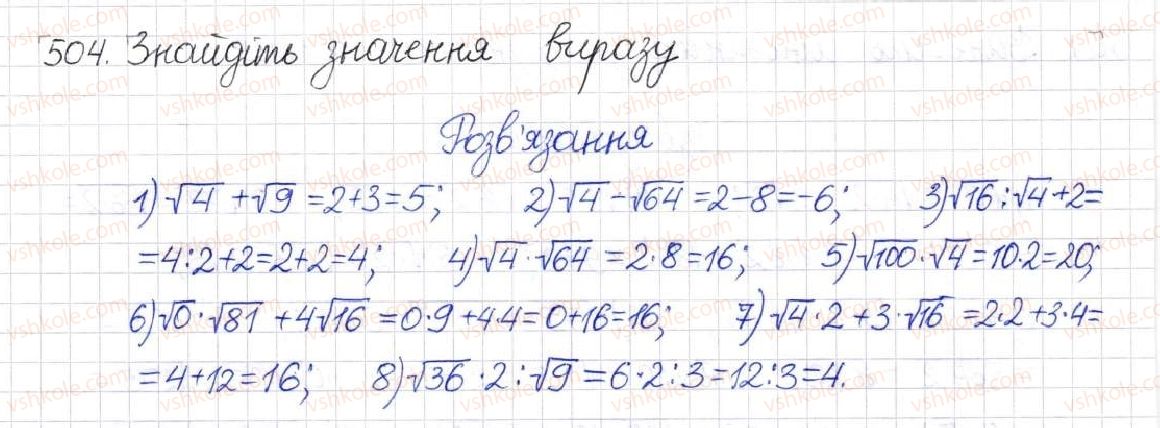 504. Знайдіть значення виразу
Розв'язання
1) √4 + √9 = 2+3 = 5; 2) √4 - √64 = 2 - 8 = -6; 3) √16 : √4 + 2 =
= 4:2+2 = 2+2 = 4; 4) √4 · √64 = 2·8 = 16; 5) √100 · √4 = 10·2 = 20;
6) √0 · √81 + 4√16 = 0·9 + 4·4 = 0+16 = 16; 7) √4 · 2 + 3 · √16 = 2·2+3·4 =
= 4+12 = 16; 8) √36 · 2 : √9 = 6·2:3 = 12:3 = 4.
vshkole.com